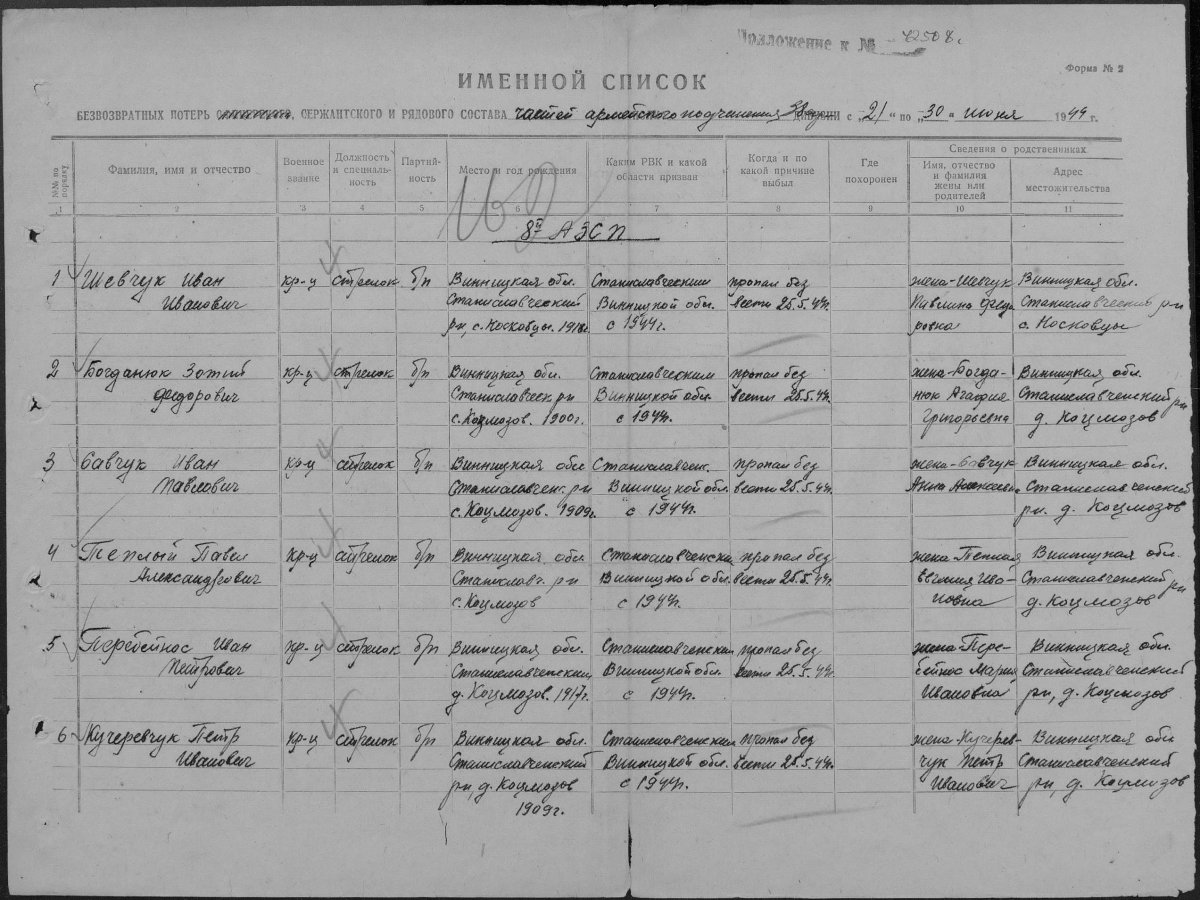 Приложение к № 42508.
Форма № 2
ИМЕННОЙ СПИСОК
БЕЗВОЗВРАТНЫХ ПОТЕРЬ СЕРЖАНТСКОГО И РЯДОВОГО СОСТАВА частей армейского подчинения 38 армии с „21“ по „30“ июня 1944 г.
№№ по порядку Фамилия, имя и отчество Военное звание Должность и специальность Партийность Место и год рождения Каким РВК и какой области призван Когда и по какой причине выбыл Где похоронен Сведения о родственниках
Имя, отчество и фамилия жены или родителей Адрес местожительства
1 2 3 4 5 6 7 8 9 10 11
8й АЗСП
1 Шевчук Иван кр-ц стрелок б/п Винницкая обл. Станиславческим пропал без жена-Шевчук Винницкая обл.
Иванович Станиславческий Винницкой обл. вести 25.5.44г. Павлина Федо Станиславческий р-н
рн, с. Носковцы. с 1944г. ровна с. Носковцы
2 Богданюк Зотий кр-ц стрелок б/п Винницкая обл. Станиславческим пропал без жена-Богда- Винницкая обл.
Федорович Станиславческ. рн Винницкой обл. вести 25.5.44г. нюк Агафия Станиславченский рн
с. Коцмозов. 1900г. с 1944г. Григорьевна д. Коцмозов
3 Савчук Иван кр-ц стрелок б/п Винницкая обл Станиславчен. пропал без жена-Савчук Винницкая обл.
Павлович Станиславчен. рн Винницкой обл. вести 25.5.44г. Анна Алексеевна Станиславченский
с. Коцмозов. 1909г. с 1944г. рн. д. Коцмозов
4 Теплый Павел кр-ц стрелок б/п Винницкая обл. Станиславченским пропал без жена-Теплая Винницкая обл.
Александрович Станиславч. рн Винницкой обл. вести 25.5.44г. Ива- Станиславченский рн
с. Коцмозов с 1944г. новна д. Коцмозов
5 Перебейнос Иван кр-ц стрелок б/п Винницкая обл. Станиславченским пропал без жена-Пере- Винницкая обл.
Петрович Станиславченский Винницкой обл. вести 25.5.44г. бейнос Мария Станиславченский
д. Коцмозов. 1917г. с 1944г. Ивановна рн, д. Коцмозов
6 Кучеревчук Петр кр-ц стрелок б/п Винницкая обл. Станиславченским пропал без жена-Кучерев- Винницкая обл
Иванович Станиславченский Винницкой обл. вести 25.5.44г. чук Петр Станиславченский
рн, д. Коцмозов с 1944г. Иванович рн, д. Коцмозов
1909г.